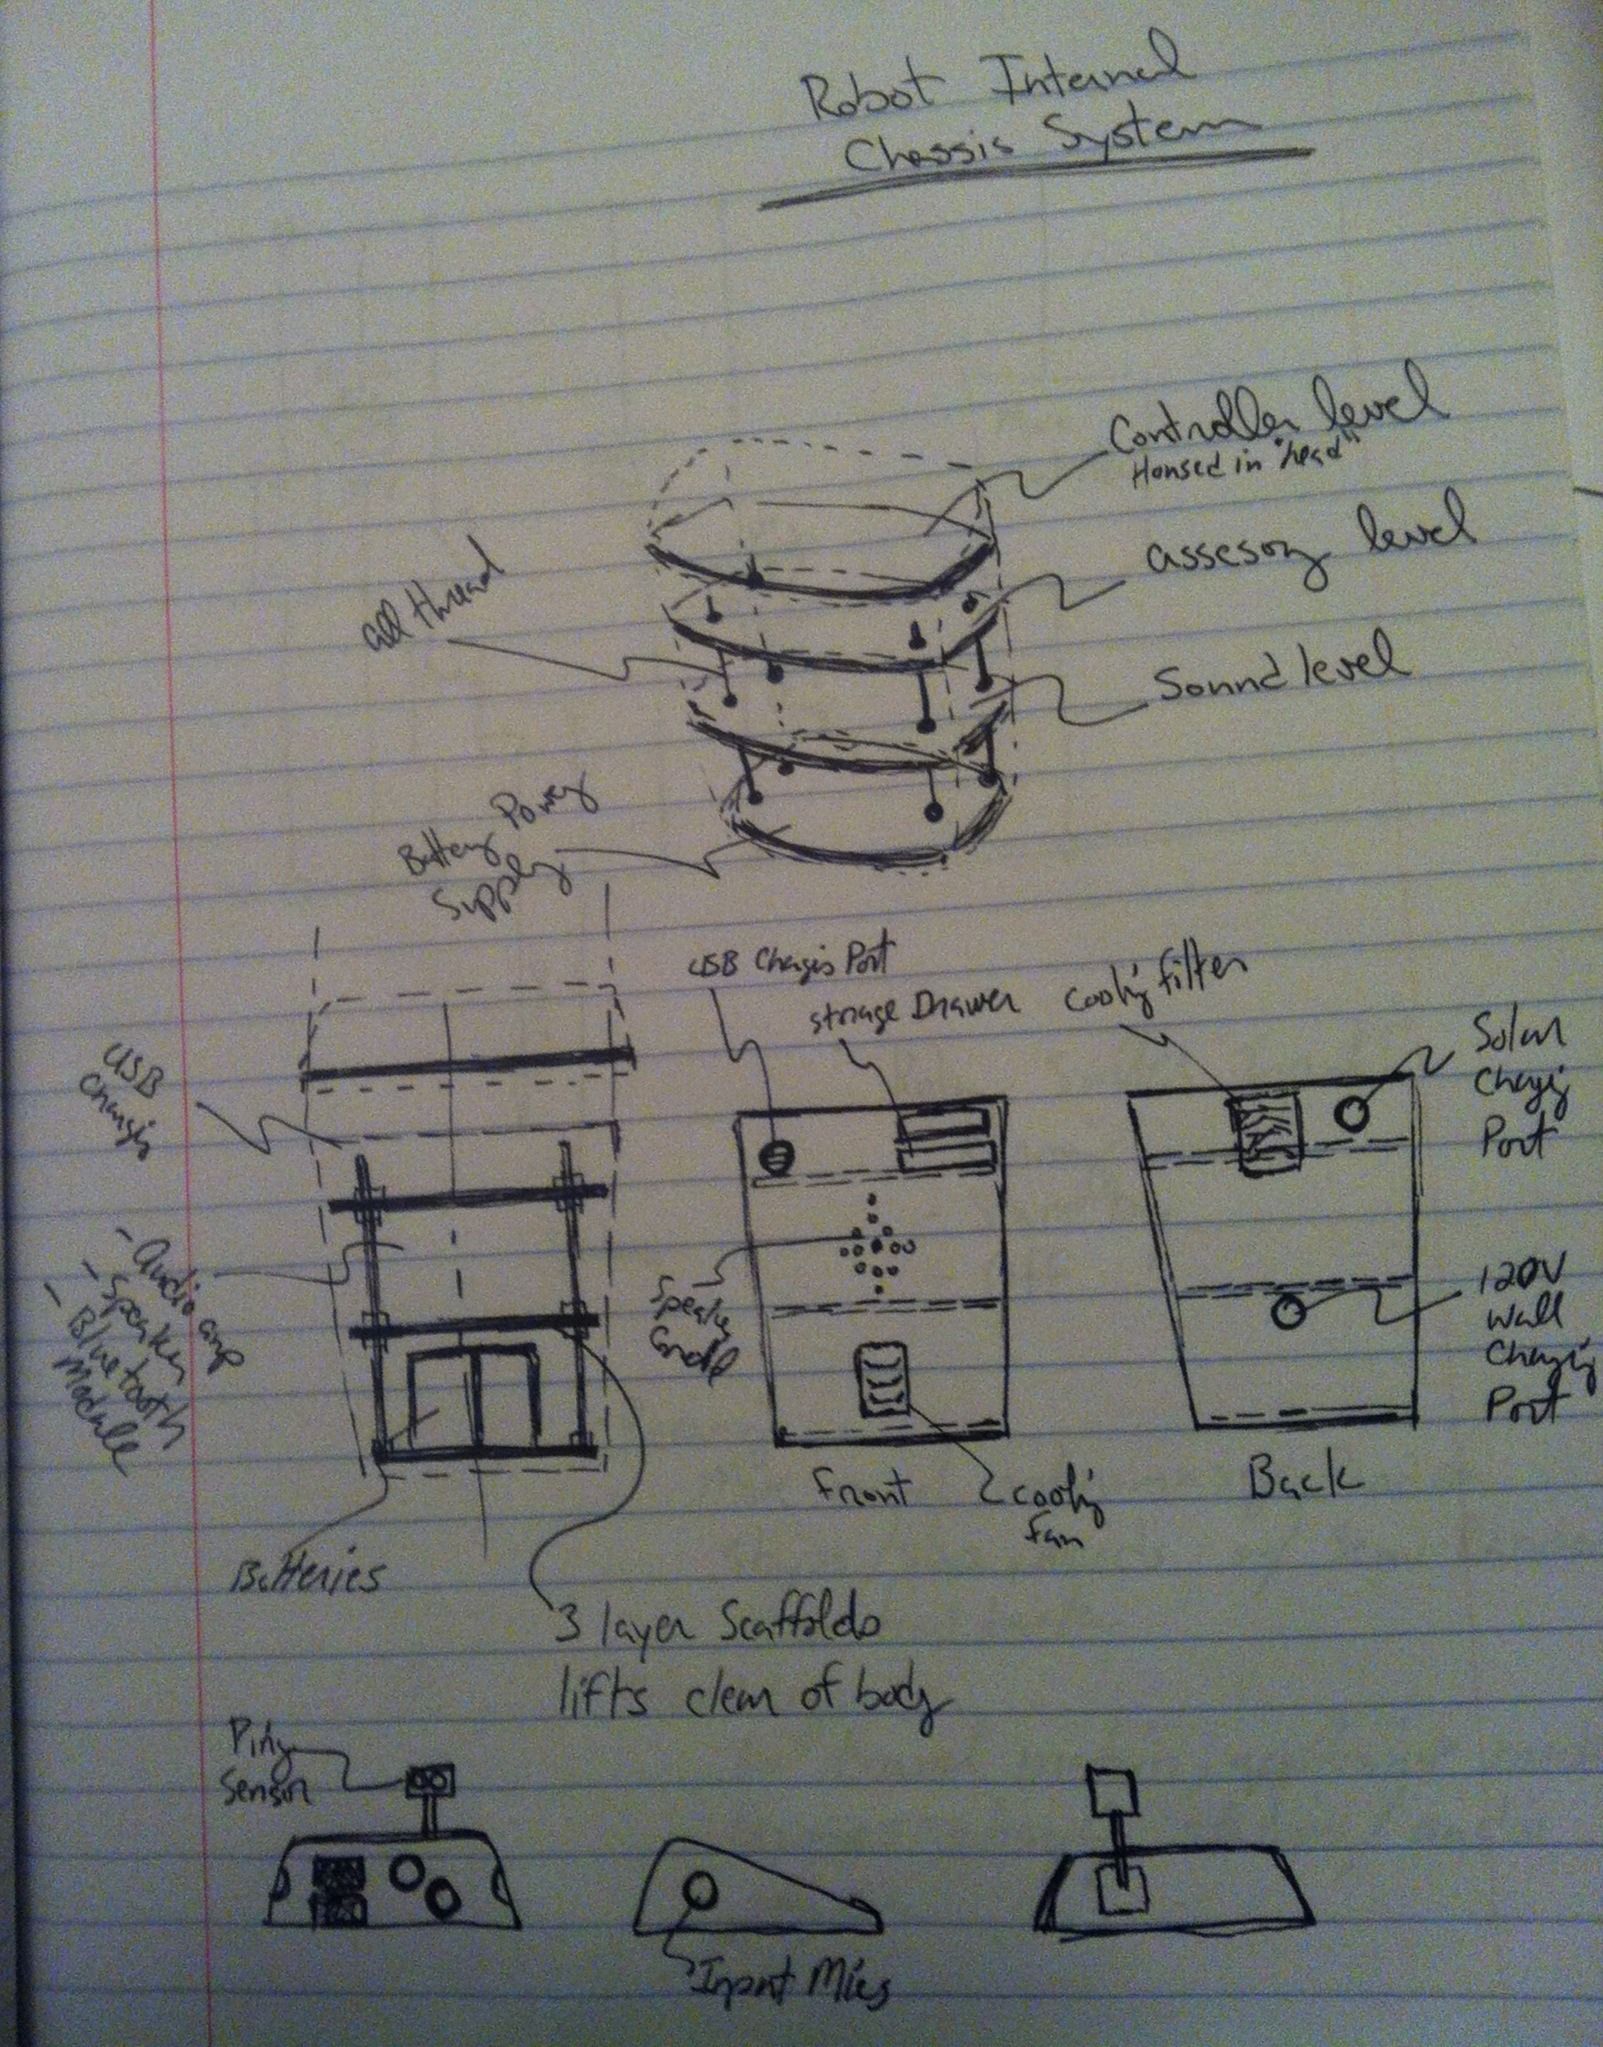 Robot Internal
Chassis System
Controller level
Housed in "head"
assesory level
all thread
Sound level
Battery Power
Supply
USB Charging Port
storage Drawer
cooling filter
Solar
Charging
Port
USB
Charging
- Audio amp
- Speaker
- Bluetooth
module
Speaker
120V
Wall
Charging
Port
Front
cooling
fan
Back
Batteries
3 layer Scaffolds
lifts clear of body
Ping
Sensor
Input Mics